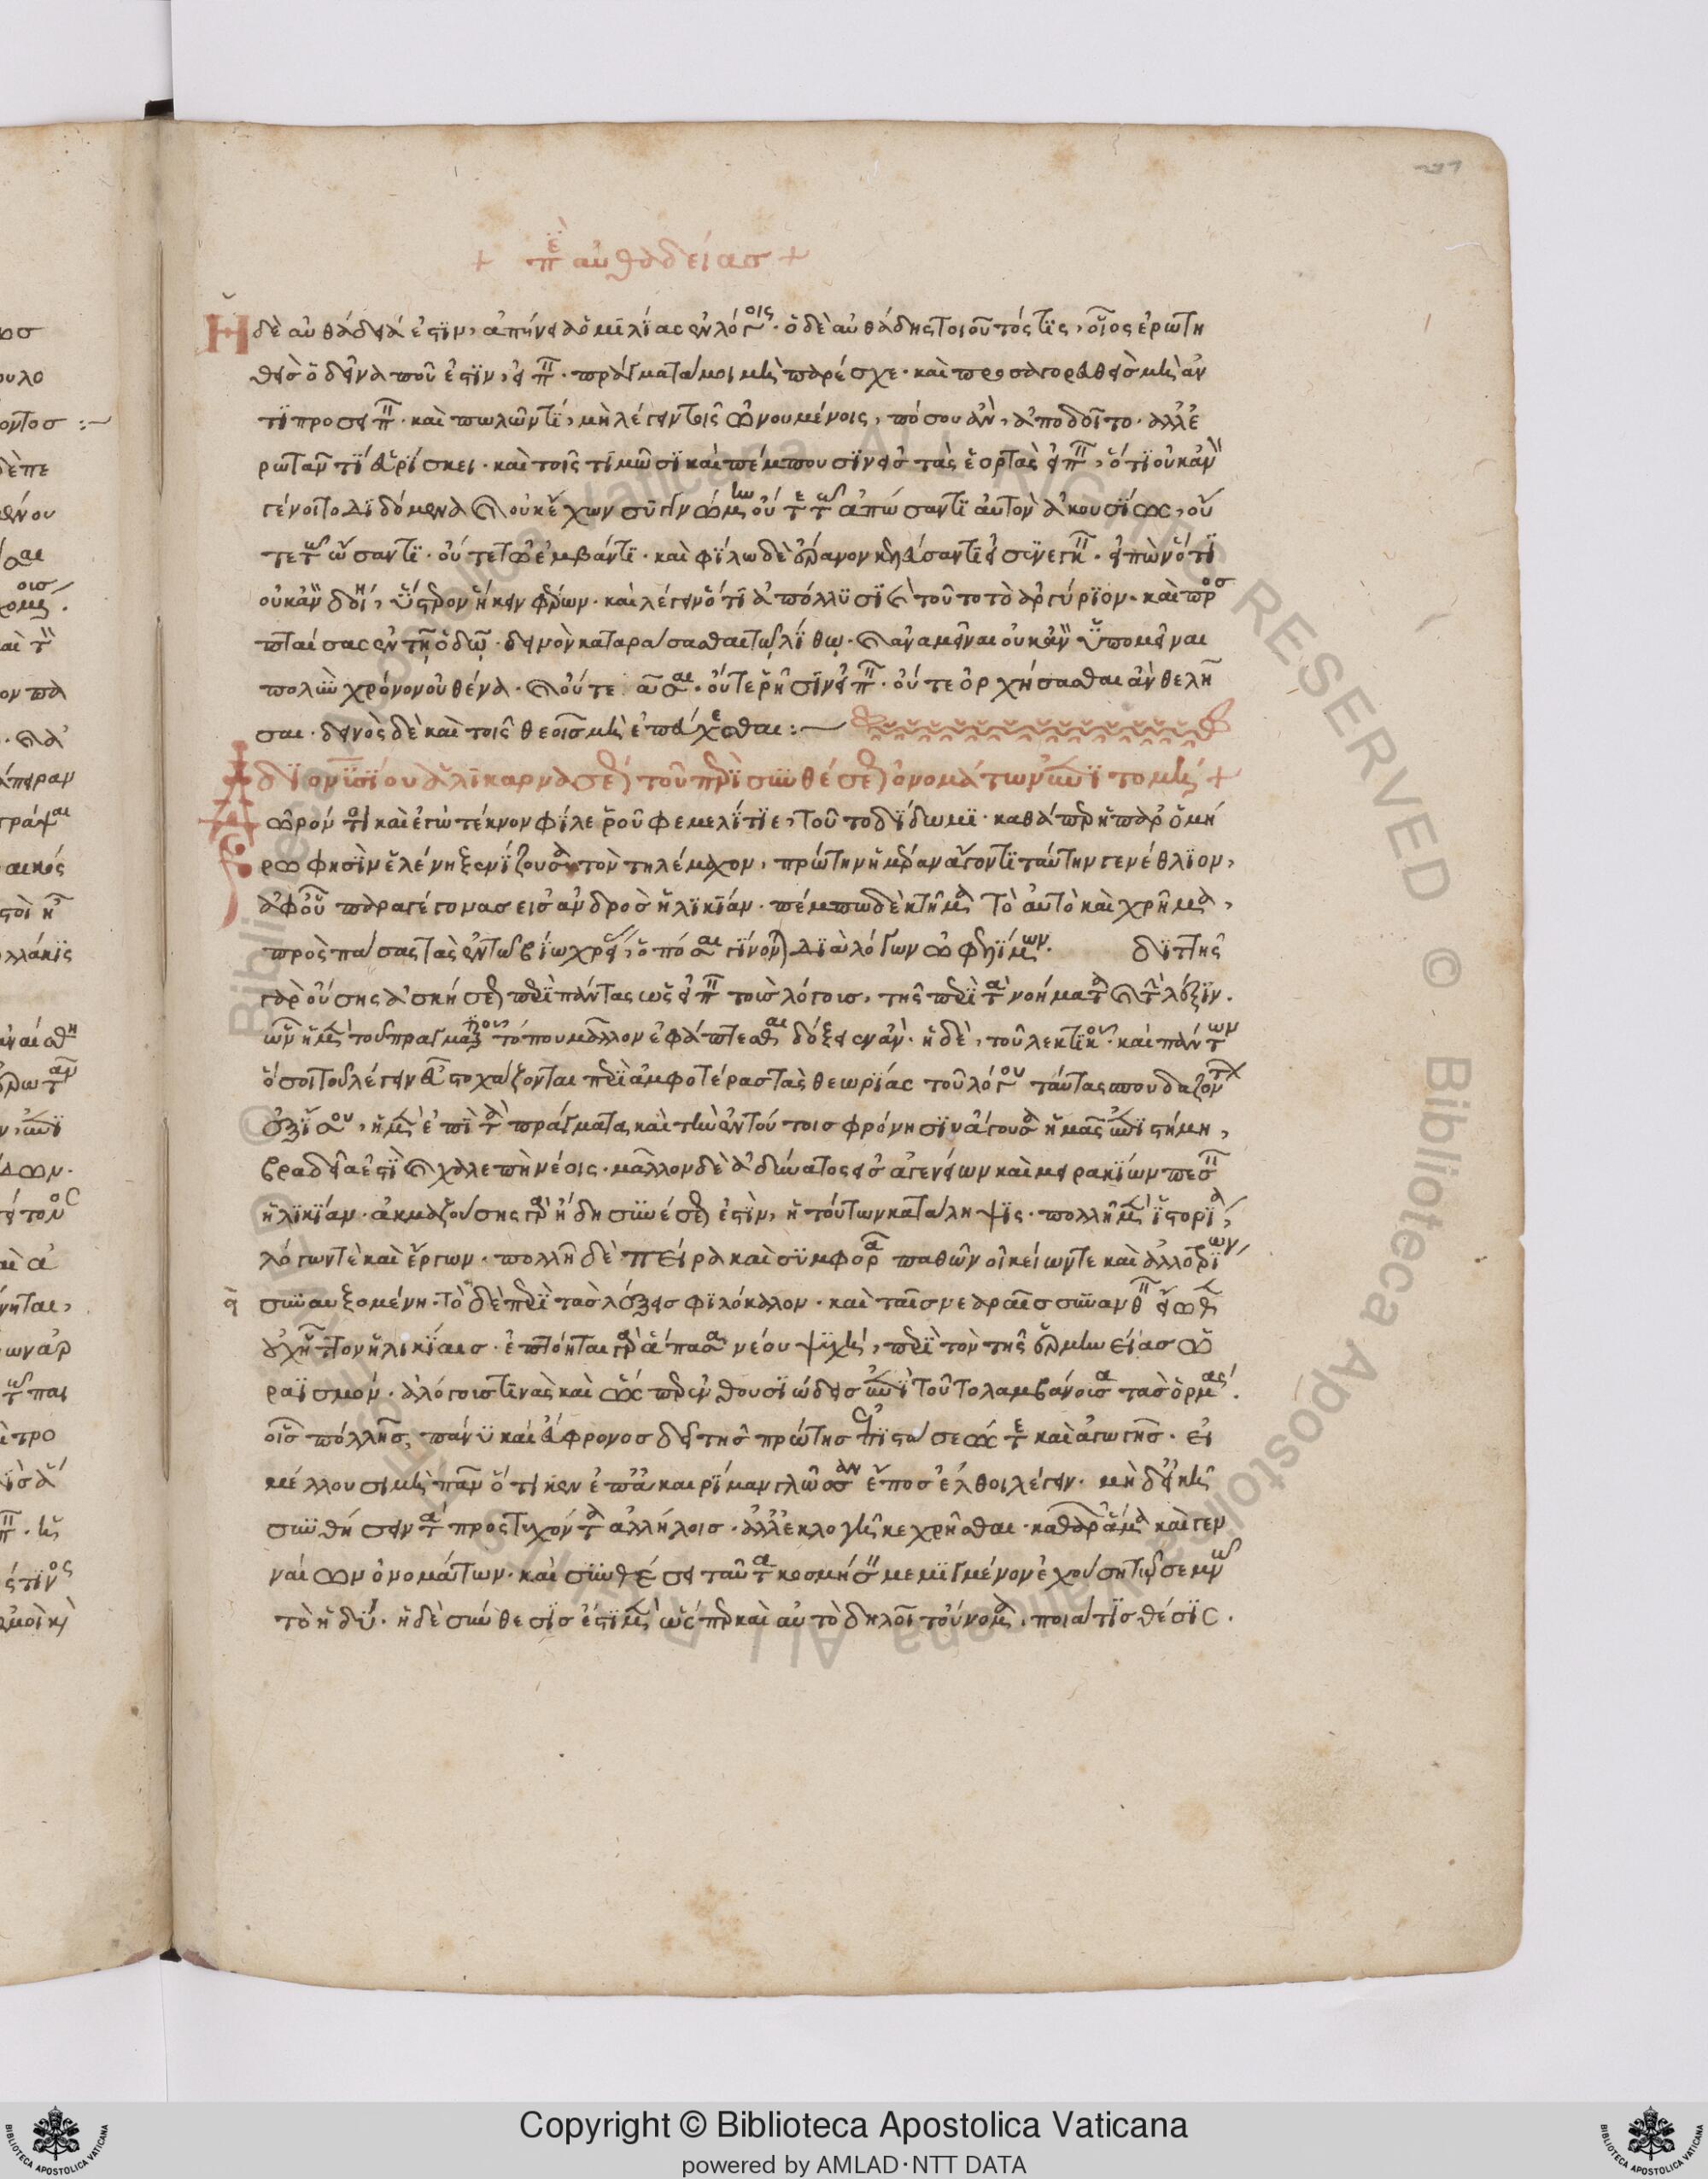 + π̅ὲ αὐθαδείασ +
Ἡ δὲ αὐθάδειά ἐστϊν, ἀπήνεια ὁμιλίας ἐν λόγοις · ὁ δὲ αὐθάδης τοιοῦτός τις, οἷος ἐρωτη
θεὶσ ὁ δεῖνα ποῦ ἐστϊν, εἰπ · πράγματά μοι μὴ πάρεσχε · καὶ προσαγορευθεὶσ μὴ ἀν
τϊπροσειπ · καὶ πωλῶν τϊ, μὴ λέγειν τοῖς ὠνουμένοις, πόσου ἂν, ἀποδοῖτο · ἀλλ' ἐ
ρωτᾶν τί εὑρϊσκει · καὶ τοῖς τϊμῶσϊ καὶ πέμπουσϊν εἰσ τὰς ἑορτὰς εἰπ, ὅτϊ οὐκ ἂν
γένοιτο διδόμενα καὶ οὐκ ἔχων συγγνώμην οὔτε τῶ ἀπώσαντϊ αὐτὸν ἀκουσϊως, οὔ
τε τῶ ὤσαντϊ · οὔτε τῶ ἐμβάντϊ · καὶ φϊλω δὲ ἔρανον κελεύσαντϊ εἰσενεγκ · εἰπὼν ὅτϊ
οὐκ ἂν δοίη, ὕστερον ἥκειν φέρων · καὶ λέγειν ὅτϊ ἀπόλλυσϊ καὶ τοῦτο τὸ ἀργύρϊον · καὶ προσ
πταίσας ἐν τῇ ὁδῷ · δεινὸν καταράσασθαι τῶ λϊθῳ · καὶ ἀναμεῖναι οὐκ ἂν ὑπομεῖναι
πολὺν χρόνον οὐθένα · καὶ οὔτε ᾆσαι · οὔτε ῥῆσϊν εἰπ · οὔτε ὀρχήσασθαι ἂν θελῆ
σαι · δεινὸς δὲ καὶ τοῖς θεοῖσ μὴ ἐπεύχεσθαι :—
+ δϊονϋσϊου ἁλϊκαρνασέως τοῦ περϊ συνθέσεως ὀνομάτων ἐπϊτομὴ +
Δῶρόν τοι καὶ ἐγὼ τέκνον φϊλε ῥοῦφε μελίτϊε, τοῦτο δϊδωμϊ · καθάπερ ἡ παρ' ὁμή
ρω φησϊν ἑλένη ξενϊζουσα τὸν τηλέμαχον, πρώτην ἡμέραν ἄγοντϊ ταύτην γενέθλϊον,
ἀφ' οὗ παραγέγονας εἰσ ἀνδροσ ἡλϊκϊαν · πέμπω δὲ κτῆμα τὸ αὐτὸ καὶ χρῆμα,
πρὸς πάσας τὰς ἐν τῶ βϊω χρείας, ὁπόσαι γϊνονται διὰ λόγων ὠφελϊμων. δϊτῆς
γὰρ οὔσης ἀσκήσεως περϊ πάντας ὡς εἰπ τοῖσ λόγοισ, τῆς περϊ τὰ νοήματα καὶ τ λέξϊν.
ὧν ἡ μὲν τοῦ πραγματϊκοῦ τόπου μᾶλλον ἐφάπτεσθαι δόξειεν ἂν · ἡ δὲ, τοῦ λεκτϊκοῦ · καὶ πάντων
ὅσοι τοῦ λέγειν εὖ στοχάζονται περϊ ἀμφοτέρας τὰς θεωρϊας τοῦ λόγου ταύτας σπουδαζόντων
ἐξ ϊσου, ἡ μὲν ἐπϊ τὰ πράγματα, καὶ τὴν ἐν τούτοισ φρόνησϊν ἄγουσα ἡμᾶς ἐπϊστήμη,
βραδεῖα ἐστϊ καὶ χαλεπὴ νέοις · μᾶλλον δὲ ἀδύνατος εἰσ ἀγενείων καὶ μειρακϊων πεσ
ἡλϊκϊαν · ἀκμαζούσης γὰρ ἤδη συνέσεως ἐστὶν, ἡ τούτων κατάληψϊς · πολλῆ μὲν ϊστορϊα,
λόγων τὲ καὶ ἔργων · πολλῆ δὲ πείρα καὶ συμφορᾶ παθῶν οἰκείων τε καὶ ἀλλοτρϊων
συναυξομένη · τὸ δὲ περϊ τὰσ λέξεις φϊλόκαλον · καὶ ταῖσ νεαραῖσ συνανθ
οὐχ ἧττον ἡλϊκϊαισ · ἐπτόηται γὰρ ἅπασα νέου ψϋχὴ, περϊ τὸν τῆς ἑρμηνείασ ὡ
ραϊσμόν · ἀλόγοισ τινὰς καὶ ὥσπερ ἐνθουσϊώδεισ ἐπϊ τοῦτο λαμβάνουσα τὰσ ὁρμάς.
οἷσ πολλῆσ, πάνϋ καὶ ἔμφρονοσ δεῖ τῆσ πρώτησ ἐπϊστάσεώς τε καὶ ἀγωγῆσ · εἰ
μέλλουσι μὴ πᾶν ὅ τι κεν ἐπ' ἀκαιρϊμαν γλῶσσαν ἔποσ ἔλθοι λέγειν. μὴ δ' εἰκῆ
συνθήσειν τὰ προστυχόντα ἀλλήλοισ · ἀλλ' ἐκλογῆ κεχρῆσθαι · καθαρῶν ἅμα καὶ γεν
ναίων ὀνομάτων · καὶ συνθέσει ταῦτα κοσμήσειν μεμϊγμένον ἐχούση τῶ σεμνῶ
τὸ ἡδύ · ἡ δὲ σύνθεσϊσ ἐστϊ μὲν ὥσπερ καὶ αὐτὸ δηλοῖ τοὔνομα, ποιά τϊσ θέσϊς.
Copyright © Biblioteca Apostolica Vaticana
powered by AMLAD·NTT DATA